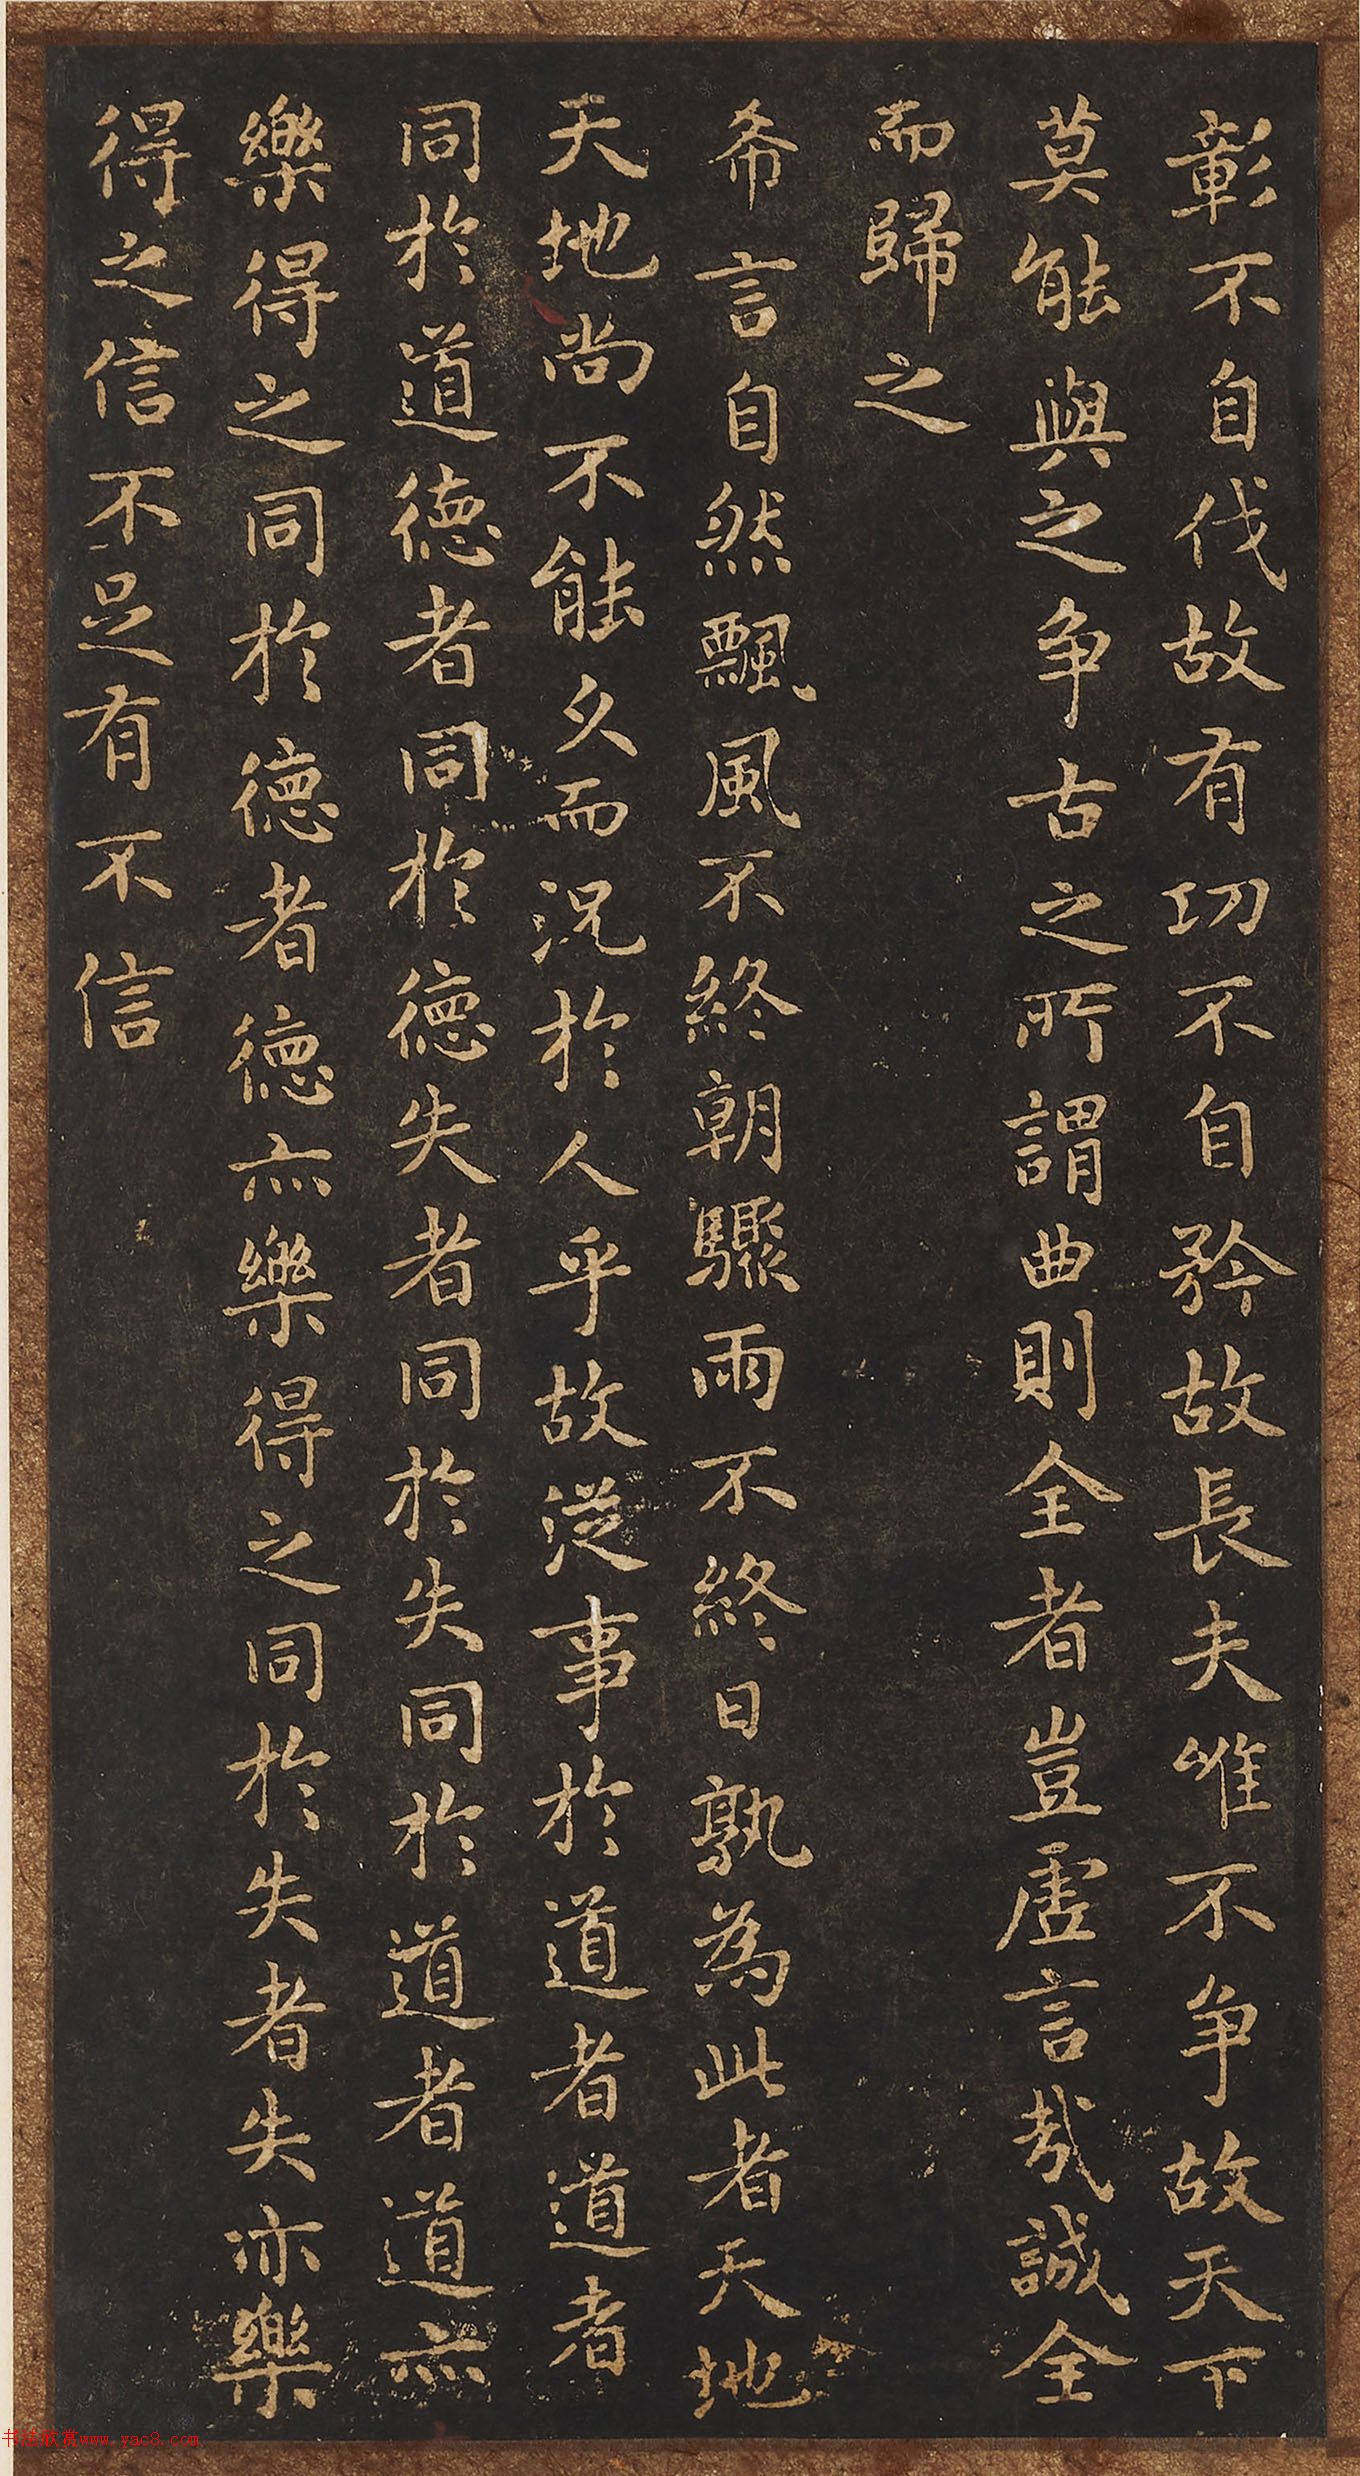 彰不自伐故有功不自矜故長夫唯不争故天下
莫能與之争古之所謂曲則全者豈虛言哉誠全
而歸之
希言自然飄風不終朝驟雨不終日孰為此者天地
天地尚不能久而況於人乎故從事於道者道者
同於道德者同於德失者同於失同於道者道亦
樂得之同於德者德亦樂得之同於失者失亦樂
得之信不足有不信
书法欣赏www.yac8.com